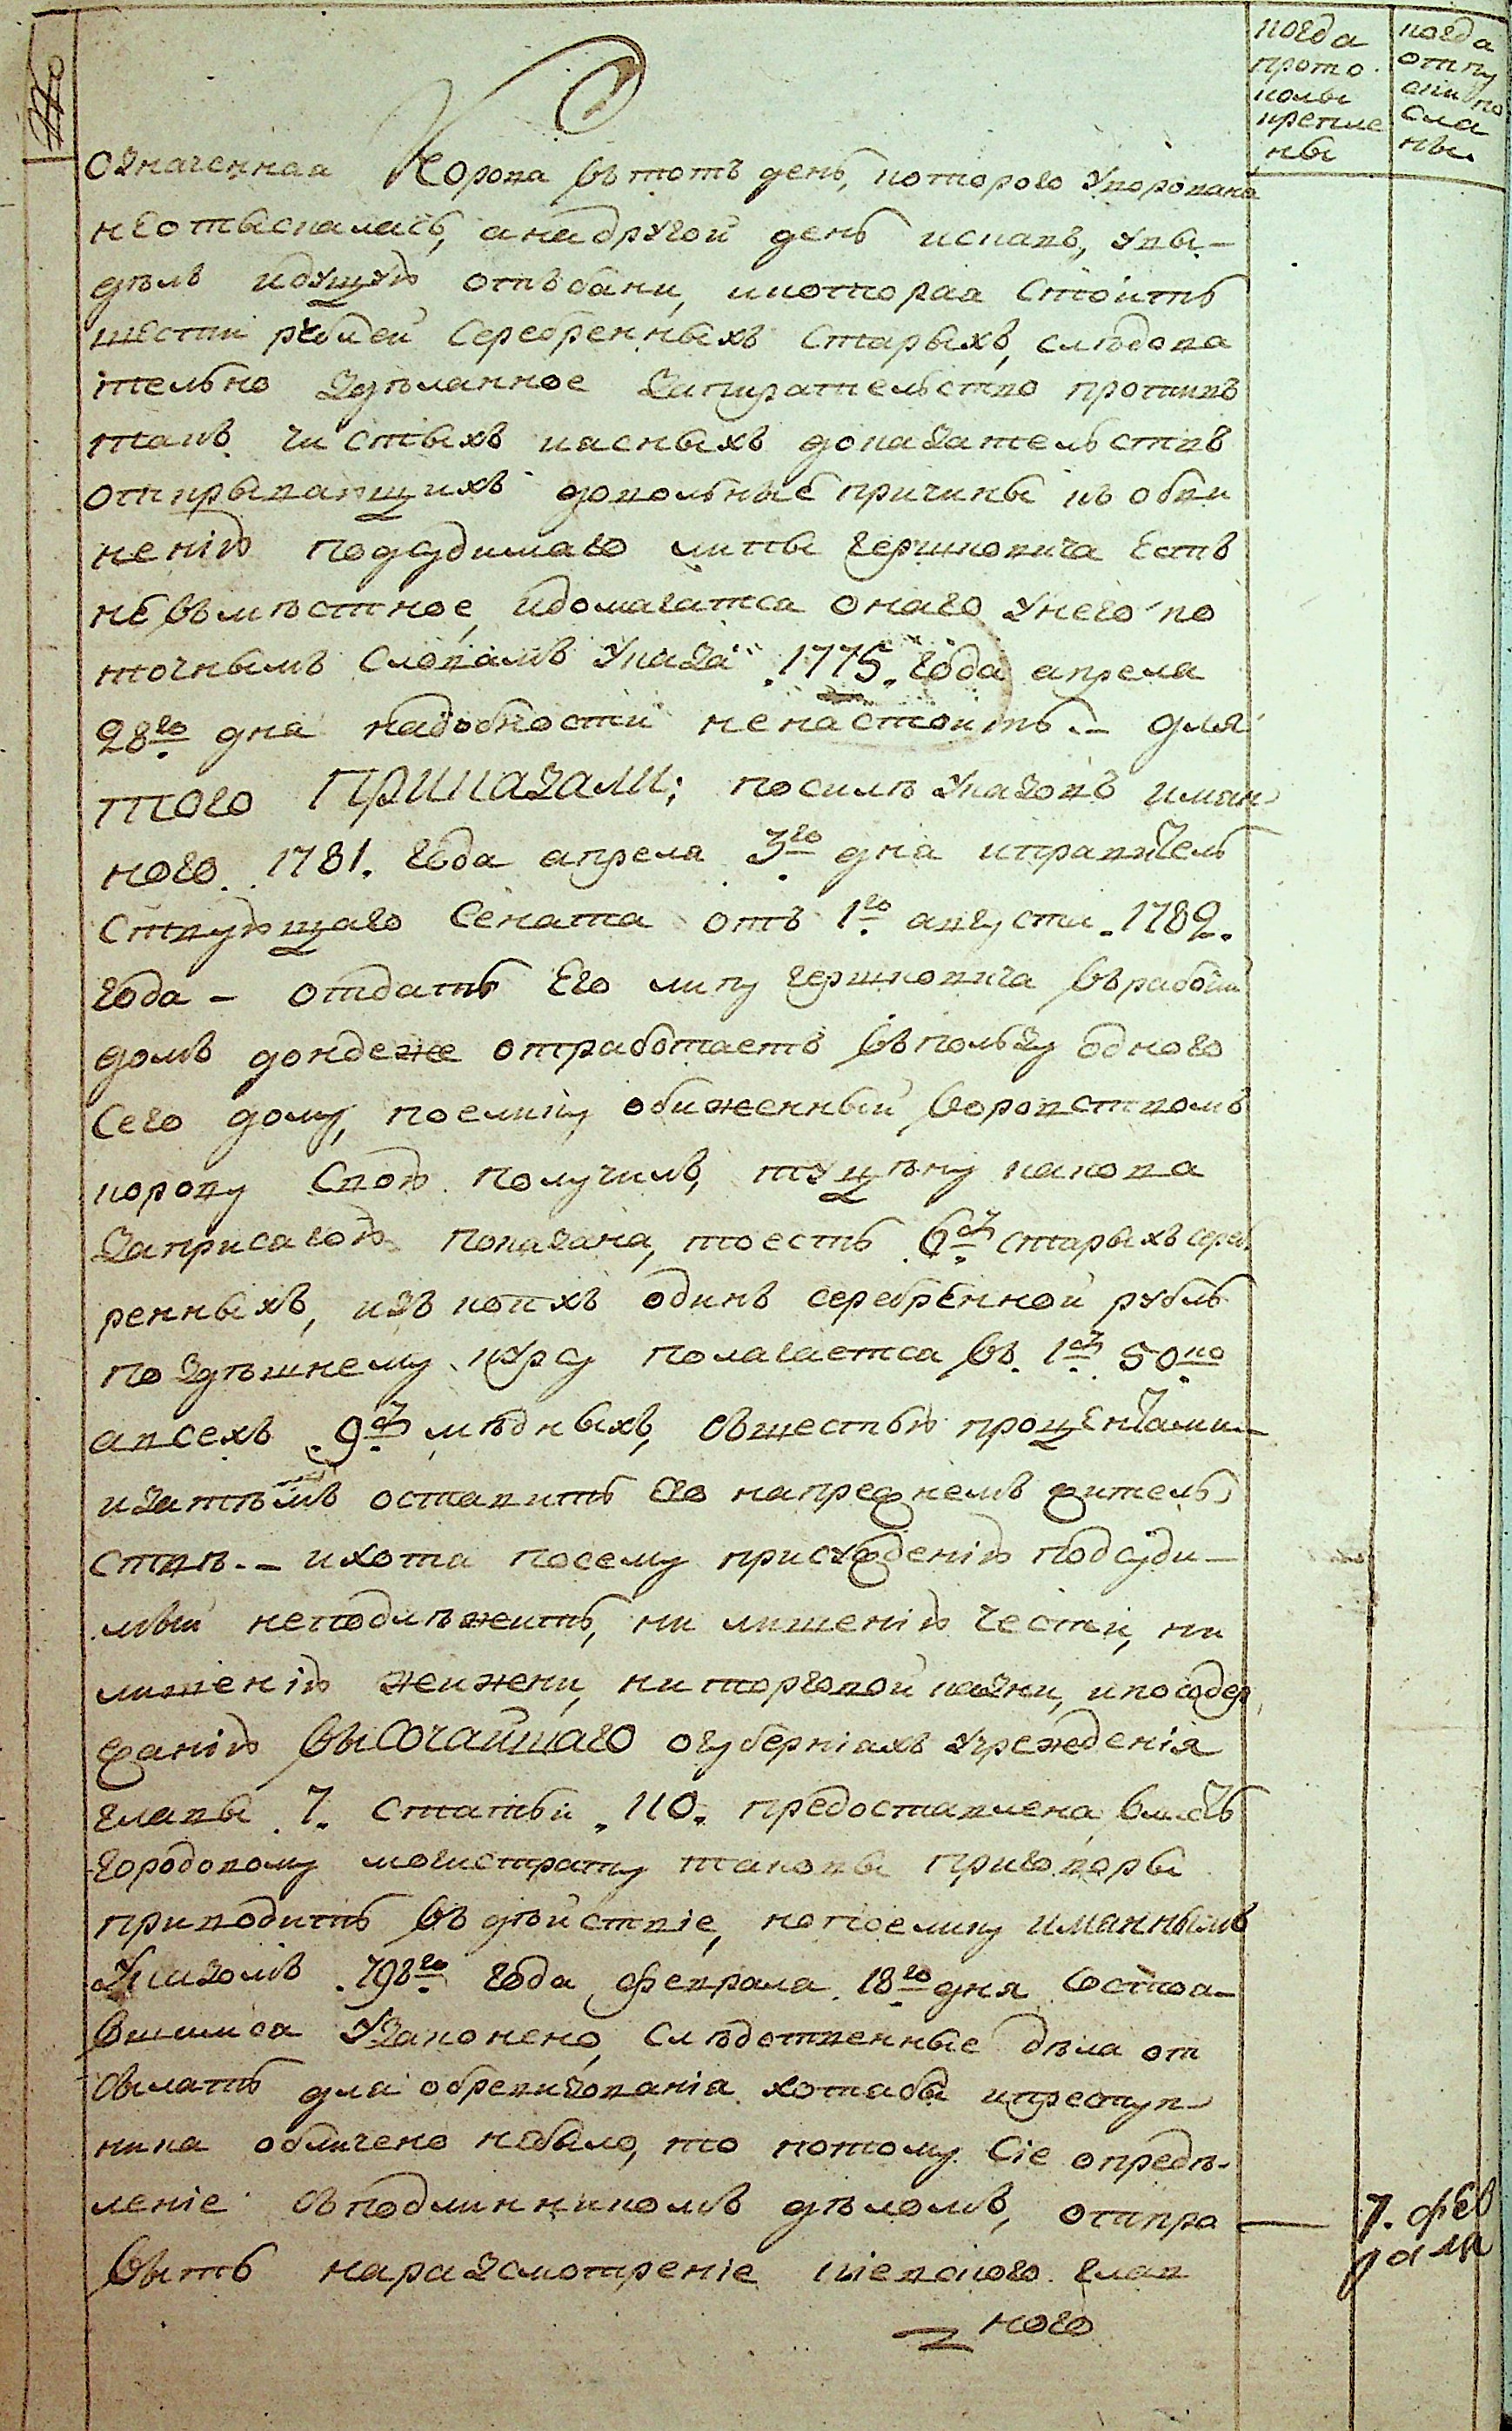 когда
прото
колы
крепле
ны
когда
отпу
ски по
сла
ны.
означенная Корова въ тотъ день, которого Укорована
неотыскалась, анадругой день искавъ, Уви-
дѣлъ идущую отъ бани, икоторая Стоитъ
шести рублей Серебренныхъ Старыхъ, слѣдова
тельно Здѣланное Запирательство противъ
такъ чистыхъ иясныхъ доказательствъ
открывающихъ довольные причины къ обви
нению подсудимаго липы гершковича Есть
невъмѣстное, идомагатся онаго Унего по
точнымъ Словамъ Указа 1775. года апреля
28го дня надобности ненастоитъ.- для
того ПРИКАЗАЛИ: посилѣ Указовъ имян-
ного 1781. года апреля 3го дня иправитель
Ствующаго Сената отъ 1го августа 1782.
года - отдать Его липу гершковича въ рабочий
домъ дондеже отработаетъ въ пользу одного
Сего дому, поелику обиженный воровствомъ
корову Свою получилъ, ту цѣну какова
Заприсягою показана, тоесть 6р старыхъ сереб
ренныхъ, изъ коихъ одинъ серебренной рубль
поздѣшнему курсу полагается въ 1р 50ко
авсехъ 9р мѣдныхъ, сыщестью процентами
изатѣмъ оставить Его напреднемъ жителъ
ствѣ.- ихотя посему присуждению подсуди-
мый неподлѣжитъ, ни лишению чести, ни
лишению жижни, ниторговой казни, ипосодер
жанию высочайшаго огубернияхъ Учреждения
главы 7. статьи 110. предоставлена власть
городовому могистрату таковы приговоры
приводить въ дѣйствие, нопоелику имяннымъ
Указомъ 798го года февраля 18го дня состоя-
вшимся Узаконено, слѣдственные дѣла от
сылать для обревизования хотябы ипреступ-
ника обличено небыло, то потому Сие опредѣ-
ление съподлинникомъ дѣломъ, отпра
вить наразсмотрение киевского глав
ного
7. фев
раля